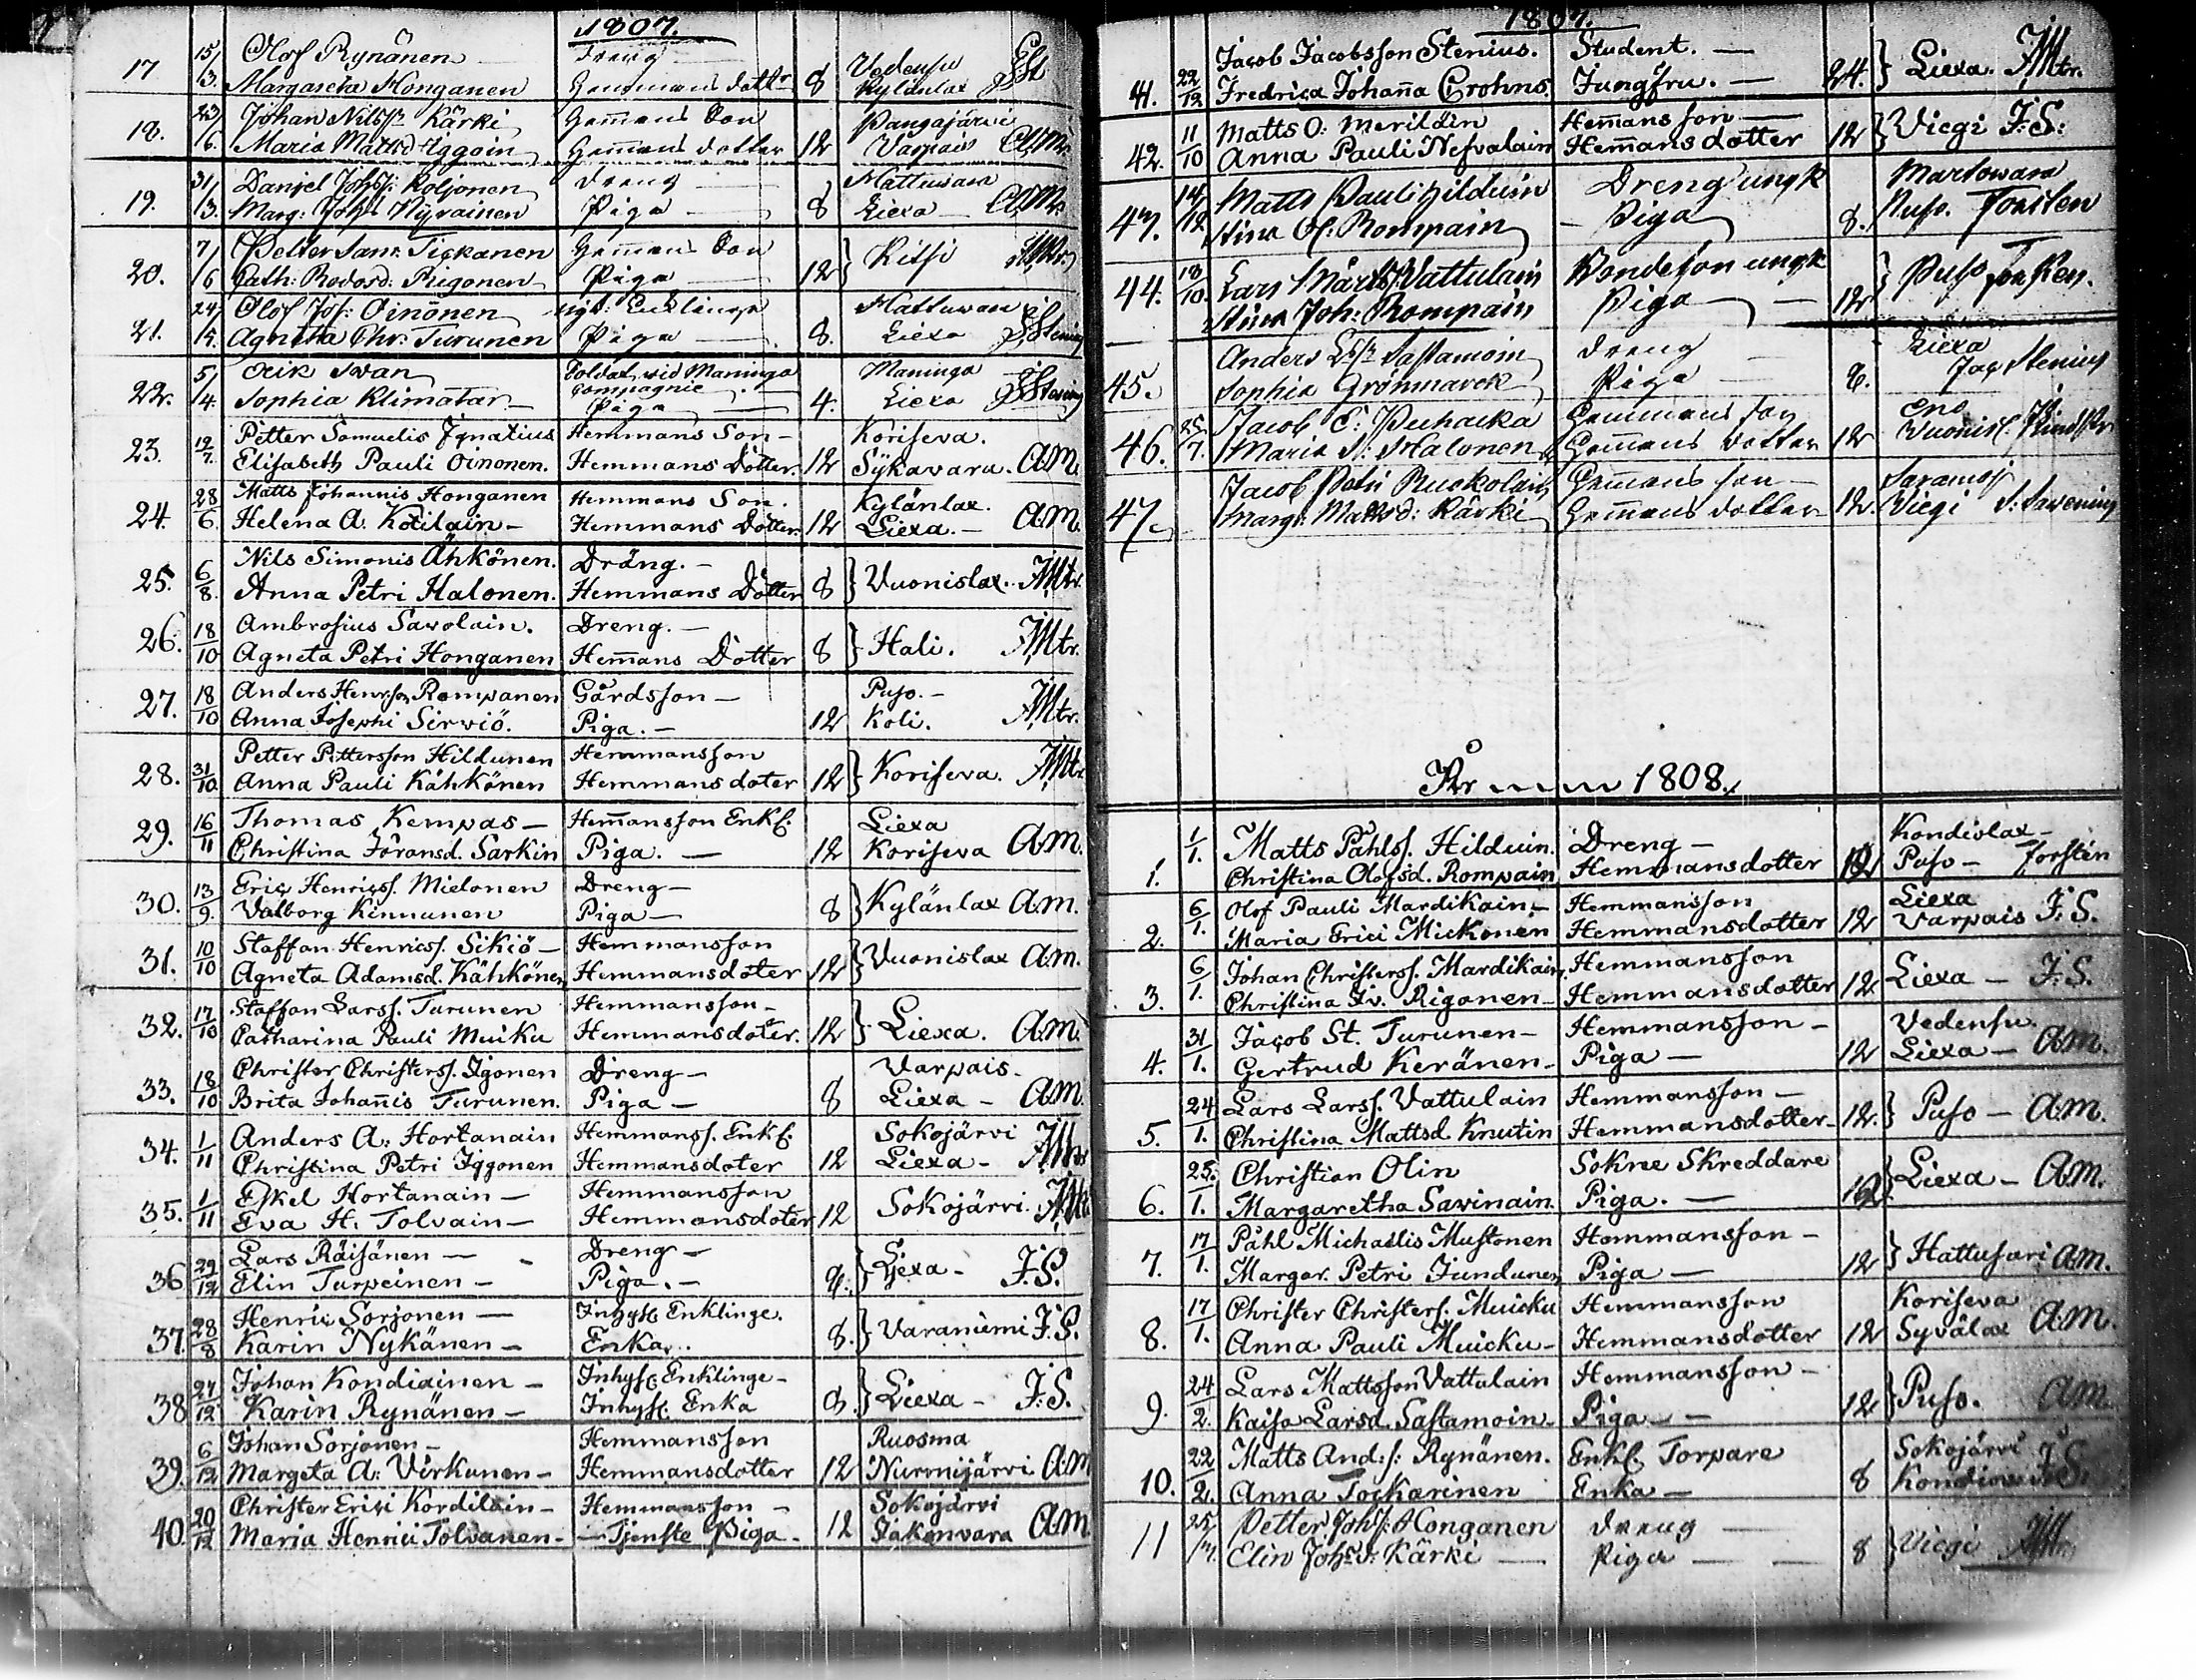 1807.
17 15/3. Olof Rynönen Dreng Vedensu
Margareta Honganen Hemmans dottr 8 Kylänlax JSt
18. 23/6. Johan Nilss:n Kärki Hem̄ans Son Pangajärvi
Maria Mattsd Iggoin Hem̄ans dotter 12 Varpais A.M.
19. 31/3. Daniel Johss: Koljonen Dreng — Hattuvara
Marg: Johsd Nyrainen Piga — 8 Liexa A.M.
20. 7/6 Petter Sam: Tickanen Hem̄ans Son
Cath: Rigonen Piga — 12 } Kitsi
21. 24/5. Olof Jos: Oinönen Enklinge Hattuvara
Agnetha Chr: Turunen Piga — 8. Liexa JStenius
22. 5/4. Erik Svan Soldat vid Maninga Compagnie Maninga
Sophia Klimatar — Piga — 4. Liexa JStenius
23. 12/7. Petter Samuelis Ignatius Hemmans Son — Koriseva.
Elisabeth Pauli Oinonen. Hemmans Dotter. 12 Sykävara. A.M.
24. 28/6. Matts Johannis Honganen Hemmans Son. Kylänlax.
Helena A. Kotilain — Hemmans Dotter. 12 Liexa. — A.M.
25. 6/8. Nils Simonis Ähkönen. Dräng. —
Anna Petri Halonen. Hemmans Dotter 8 } Vuonislax. JMtr.
26. 18/10 Ambrosius Savolain. Dreng. —
Agneta Petri Honganen Hem̄ans Dotter 8 } Hali. JMtr.
27. 18/10 Anders Henr:son Rompanen Gårdsson — Puso. —
Anna Josephi Sirviö. Piga. — 12 Koli. JMtr.
28. 31/10 Petter Pettersson Hildunen Hemmansson
Anna Pauli Kähkönen Hemmansdoter 12 } Koriseva. JMtr
29. 16/11 Thomas Kempas — Hem̄ansson Enkl. Liexa
Christina Jöransd. Sarkin Piga. — 12 Koriseva A.M.
30. 13/9. Eric Henricss. Mielonen Dreng —
Valborg Kinnunen Piga — 8 } Kylänlax A.M.
31. 10/10 Staffan Henricss. Sikiö — Hemmansson
Agneta Adamsd. Kähkönen Hemmansdoter 12 } Vuonislax A.M.
32. 17/10 Staffan Larss. Turunen Hemmansson —
Catharina Pauli Muiku Hemmansdoter. 12 } Liexa. A.M.
33. 18/10 Christer Christerss. Igonen Dreng — Varpais —
Brita Johan̄is Turunen. Piga — 8 Liexa — A.M.
34. 1/11 Anders A: Hortanain Hemmanss. Enkl. Sokojärvi
Christina Petri Iggonen Hemmansdoter 12 Liexa — JMtr
35. 1/11 Eskel Hortanain — Hemmansson
Eva H. Tolvain — Hemmansdoter 12 Sokojärvi. JMtr
36 29/12 Lars Räisänen — Dreng —
Elin Turpeinen — Piga. — 8. } Liexa — J.S.
37. 28/8 Henric Sorjonen — Inhyss Enklinge.
Karin Nykänen — Enka. 8. } Varaniemi J.S.
38 27/12 Johan Kondiainen — Inhyss Enklinge —
Karin Rynänen — Inhyss Enka 8. } Liexa — J.S.
39. 6/12 Johan Sorjonen — Hemmansson Ruosma
Margeta A: Virkunen — Hemmansdotter 12 Nurmijärvi A.M
40. 20/12 Christer Erici Kordilain — Hemmansson — Sokojärvi
Maria Henrici Tolvanen — Tjenste Piga — 12 Jakonvara A.M
1807.
41. 22/12 Jacob Jacobsson Stenius. Student. —
Fredrica Johan̄a Crohns. Jungfru. — 24. } Liexa. JMtr.
42. 11/10 Matts O: Meriläin Hem̄ans son —
Anna Pauli Nefvalain Hem̄ans dotter 12 } Viegi J:S:
43. 14/12 Matts Pauli Hilduin Dreng ungk Martovara
Stina Ol: Rompain — Piga 8. Puso. Forsten
44. 18/10. Lars Mårtss: Vattulain Bondeson ungk
Stina Joh: Rompain Piga — 12 } Puso Forsten.
45. Anders Sastamoin Dreng Liexa
Sophia Grönmarck Piga 8. Jac Stenius
46. 25/7. Jacob E: Puhacka Hemmans son Eno
Maria S: Halonen Hem̄ans dotter 12 Vuonisl.
47. Jacob Petri Ruokolain Hem̄ans son — Saramoj
Marg: Mattsd: Kärki Hem̄ans dotter 12. Viegi
År 1808.
1. 1/1. Matts Påhlss. Hilduin. Dreng — Kondislax —
Christina Olofsd. Rompain Hemmansdotter 12 Puso — Forsten
2. 6/1. Olof Pauli Mardikain — Hemmansson Liexa
Maria Erici Mickonen Hemmansdotter 12 Varpais J.S.
3. 6/1. Johan Christerss. Mardikain Hemmansson
Christina Iv. Rigonen — Hemmansdotter 12 Liexa — J.S.
4. 31/1. Jacob St. Turunen — Hemmansson — Vedensu.
Gertrud Keränen — Piga — 12 Liexa — A.M.
5. 24/1. Lars Larss. Vattulain Hemmansson —
Christina Mattsd. Knutin Hemmansdotter — 12. } Puso — A.M.
6. 25/1. Christian Olin Sokne Skreddare
Margaretha Savinain. Piga. — 12 } Liexa — A.M.
7. 17/1. Påhl Michaelis Mustonen Hemmansson —
Margar. Petri Jundunen Piga — 12 } Hattusari A.M.
8. 17/1. Christer Christers. Muicku Hemmansson Koriseva
Anna Pauli Muicku — Hemmansdotter 12 Syvälax A.M.
9. 24/2. Lars Mattsson Vattulain Hemmansson —
Kaisa Larsd. Sastamoin. Piga — 12 } Puso. A.M.
10. 22/2. Matts And:s: Rynänen. Enkl. Torpare Sokojärvi
Anna Tockarinen Enka — 8 J.S.
11 25/ Petter Johss: Honganen Dreng —
Elin Johsd: Kärki — Piga — 8 } Viegi JMtr